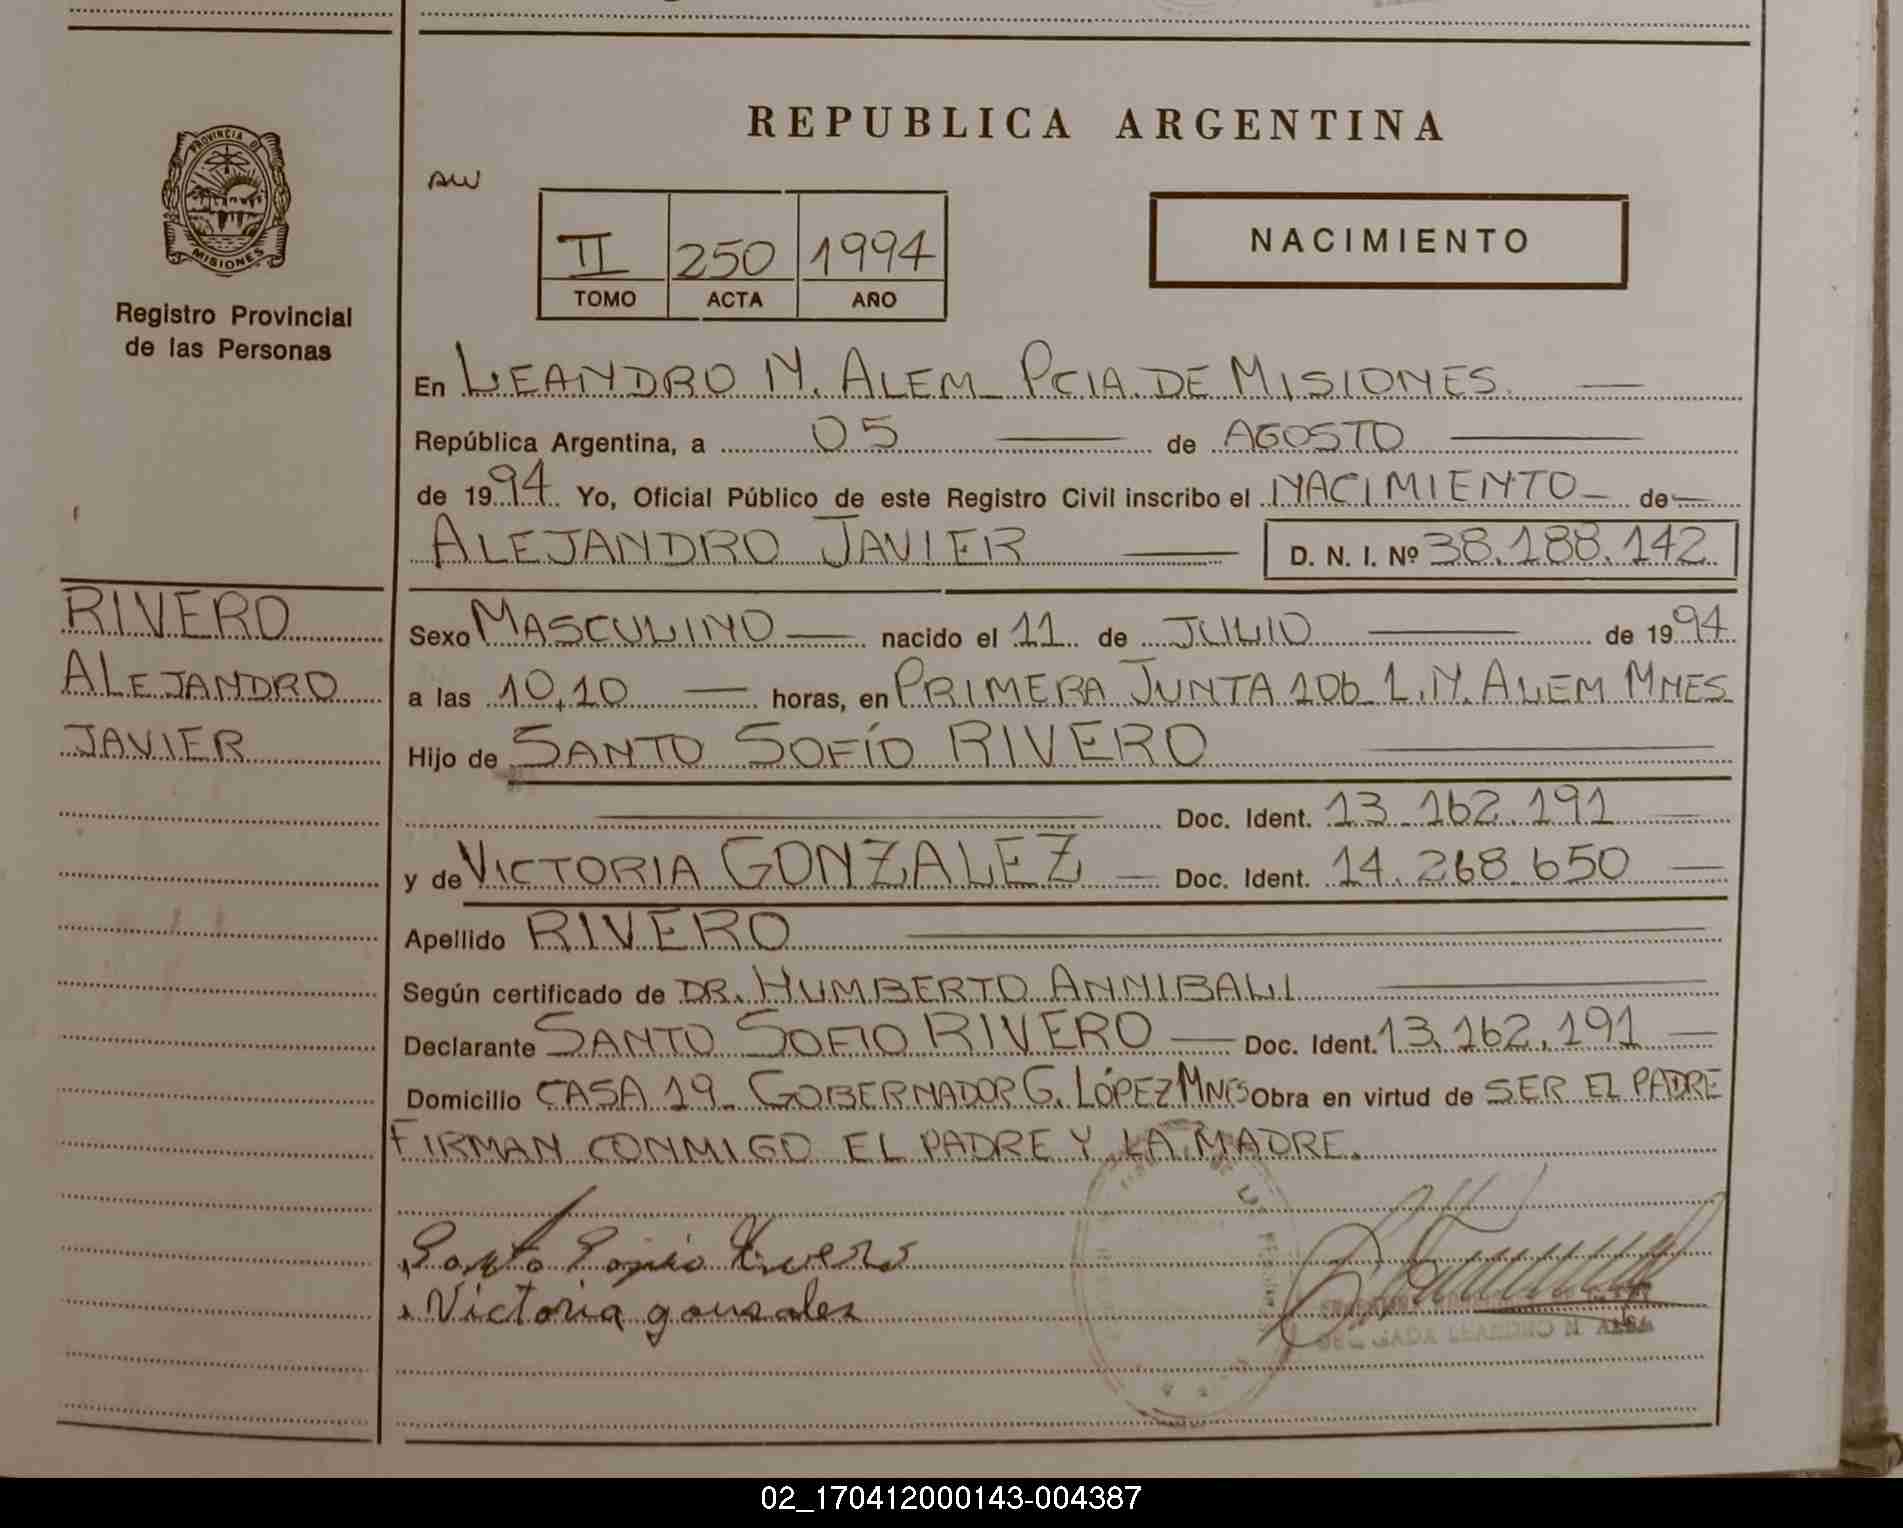 REPUBLICA ARGENTINA
PROVINCIA DE
MISIONES
Registro Provincial
de las Personas
AW
II 250 1994
TOMO ACTA AÑO
NACIMIENTO
En LEANDRO N. ALEM_ PCIA. DE MISIONES.
República Argentina, a 05 de AGOSTO
de 1994 Yo, Oficial Público de este Registro Civil inscribo el NACIMIENTO_ de
ALEJANDRO JAVIER D. N. I. Nº 38.188.142
RIVERO
ALEJANDRO
JAVIER
Sexo MASCULINO nacido el 11 de JULIO de 1994
a las 10,10 horas, en PRIMERA JUNTA 106_ L.N. ALEM MNES
Hijo de SANTO SOFÍO RIVERO
Doc. Ident. 13.162.191
y de VICTORIA GONZALEZ Doc. Ident. 14.268.650
Apellido RIVERO
Según certificado de DR. HUMBERTO ANNIBALI
Declarante SANTO SOFIO RIVERO Doc. Ident. 13.162.191
Domicilio CASA 19_ GOBERNADOR G. LÓPEZ MNES Obra en virtud de SER EL PADRE
FIRMAN CONMIGO EL PADRE Y LA MADRE.
Santo Sofio Rivero
Victoria gonzales
LEANDRO N. ALEM
02_170412000143-004387